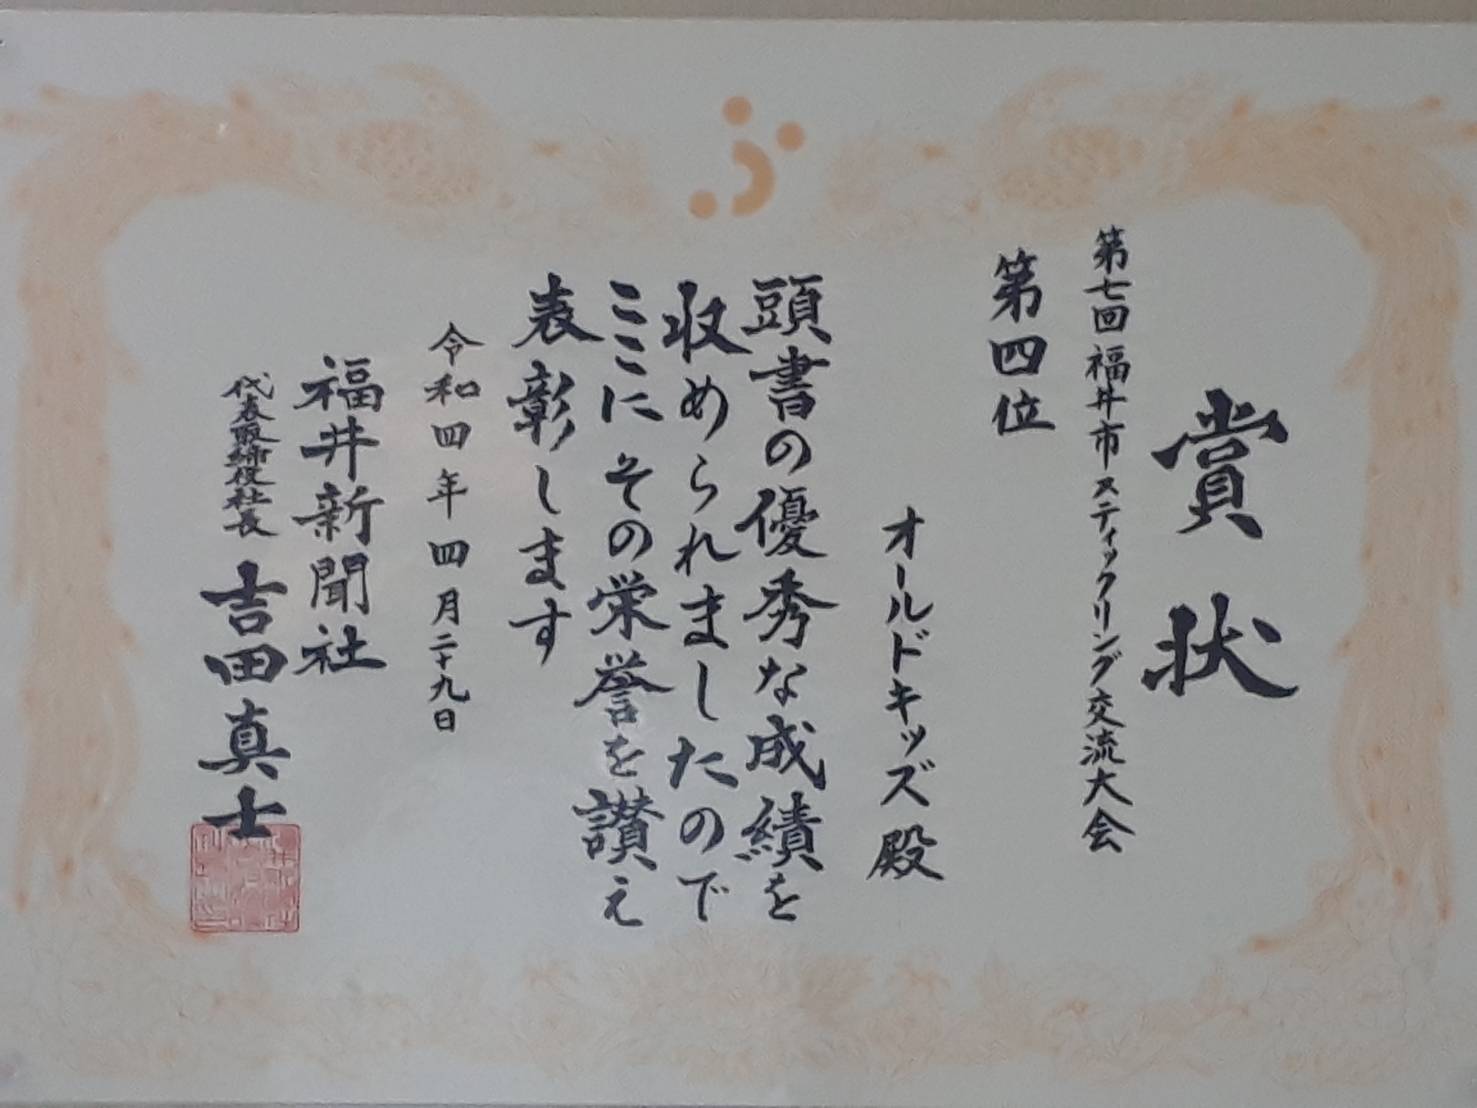 賞状
第七回福井市スティックリング交流大会
第四位
オールドキッズ殿
頭書の優秀な成績を
収められましたので
ここにその栄誉を讃え
表彰します
令和四年四月二十九日
福井新聞社
代表取締役社長 吉田真士